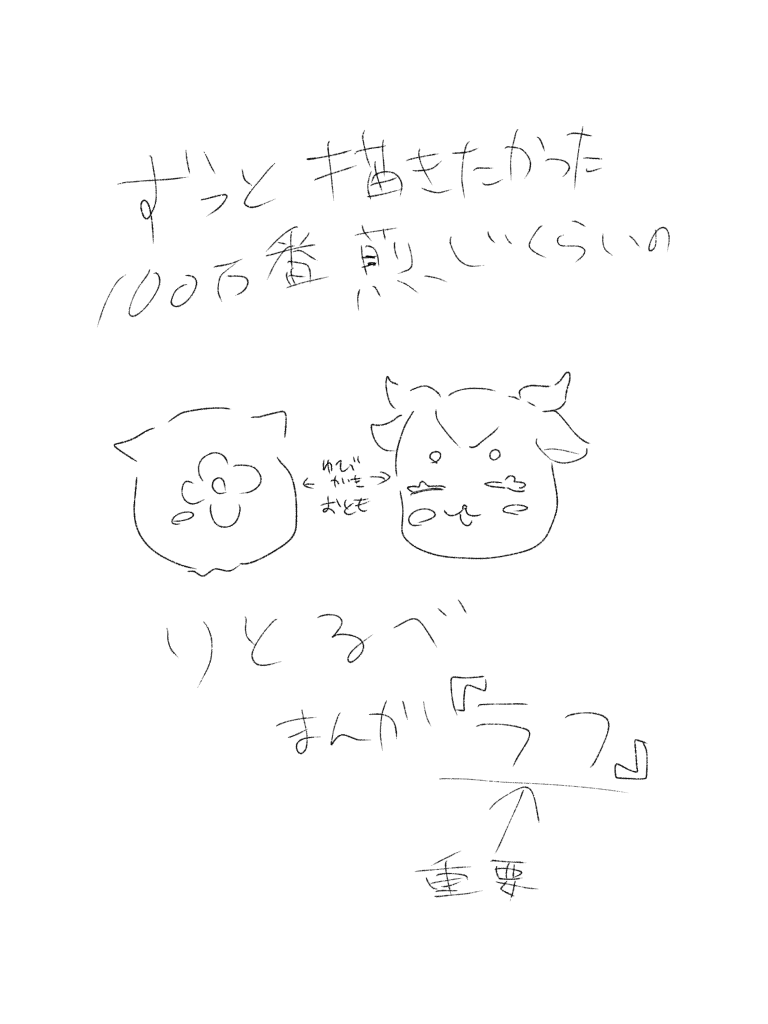 ずっと描きたかった
100万番煎じくらいの
ゆび
がき
おとも
りとるべ
まんが『ラフ』
重要